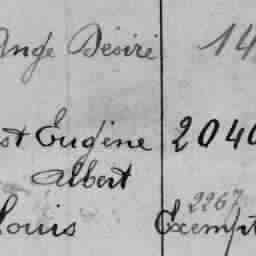 Ange Désiré 14
st Eugène 2040
Albert
2267
Louis Exempt